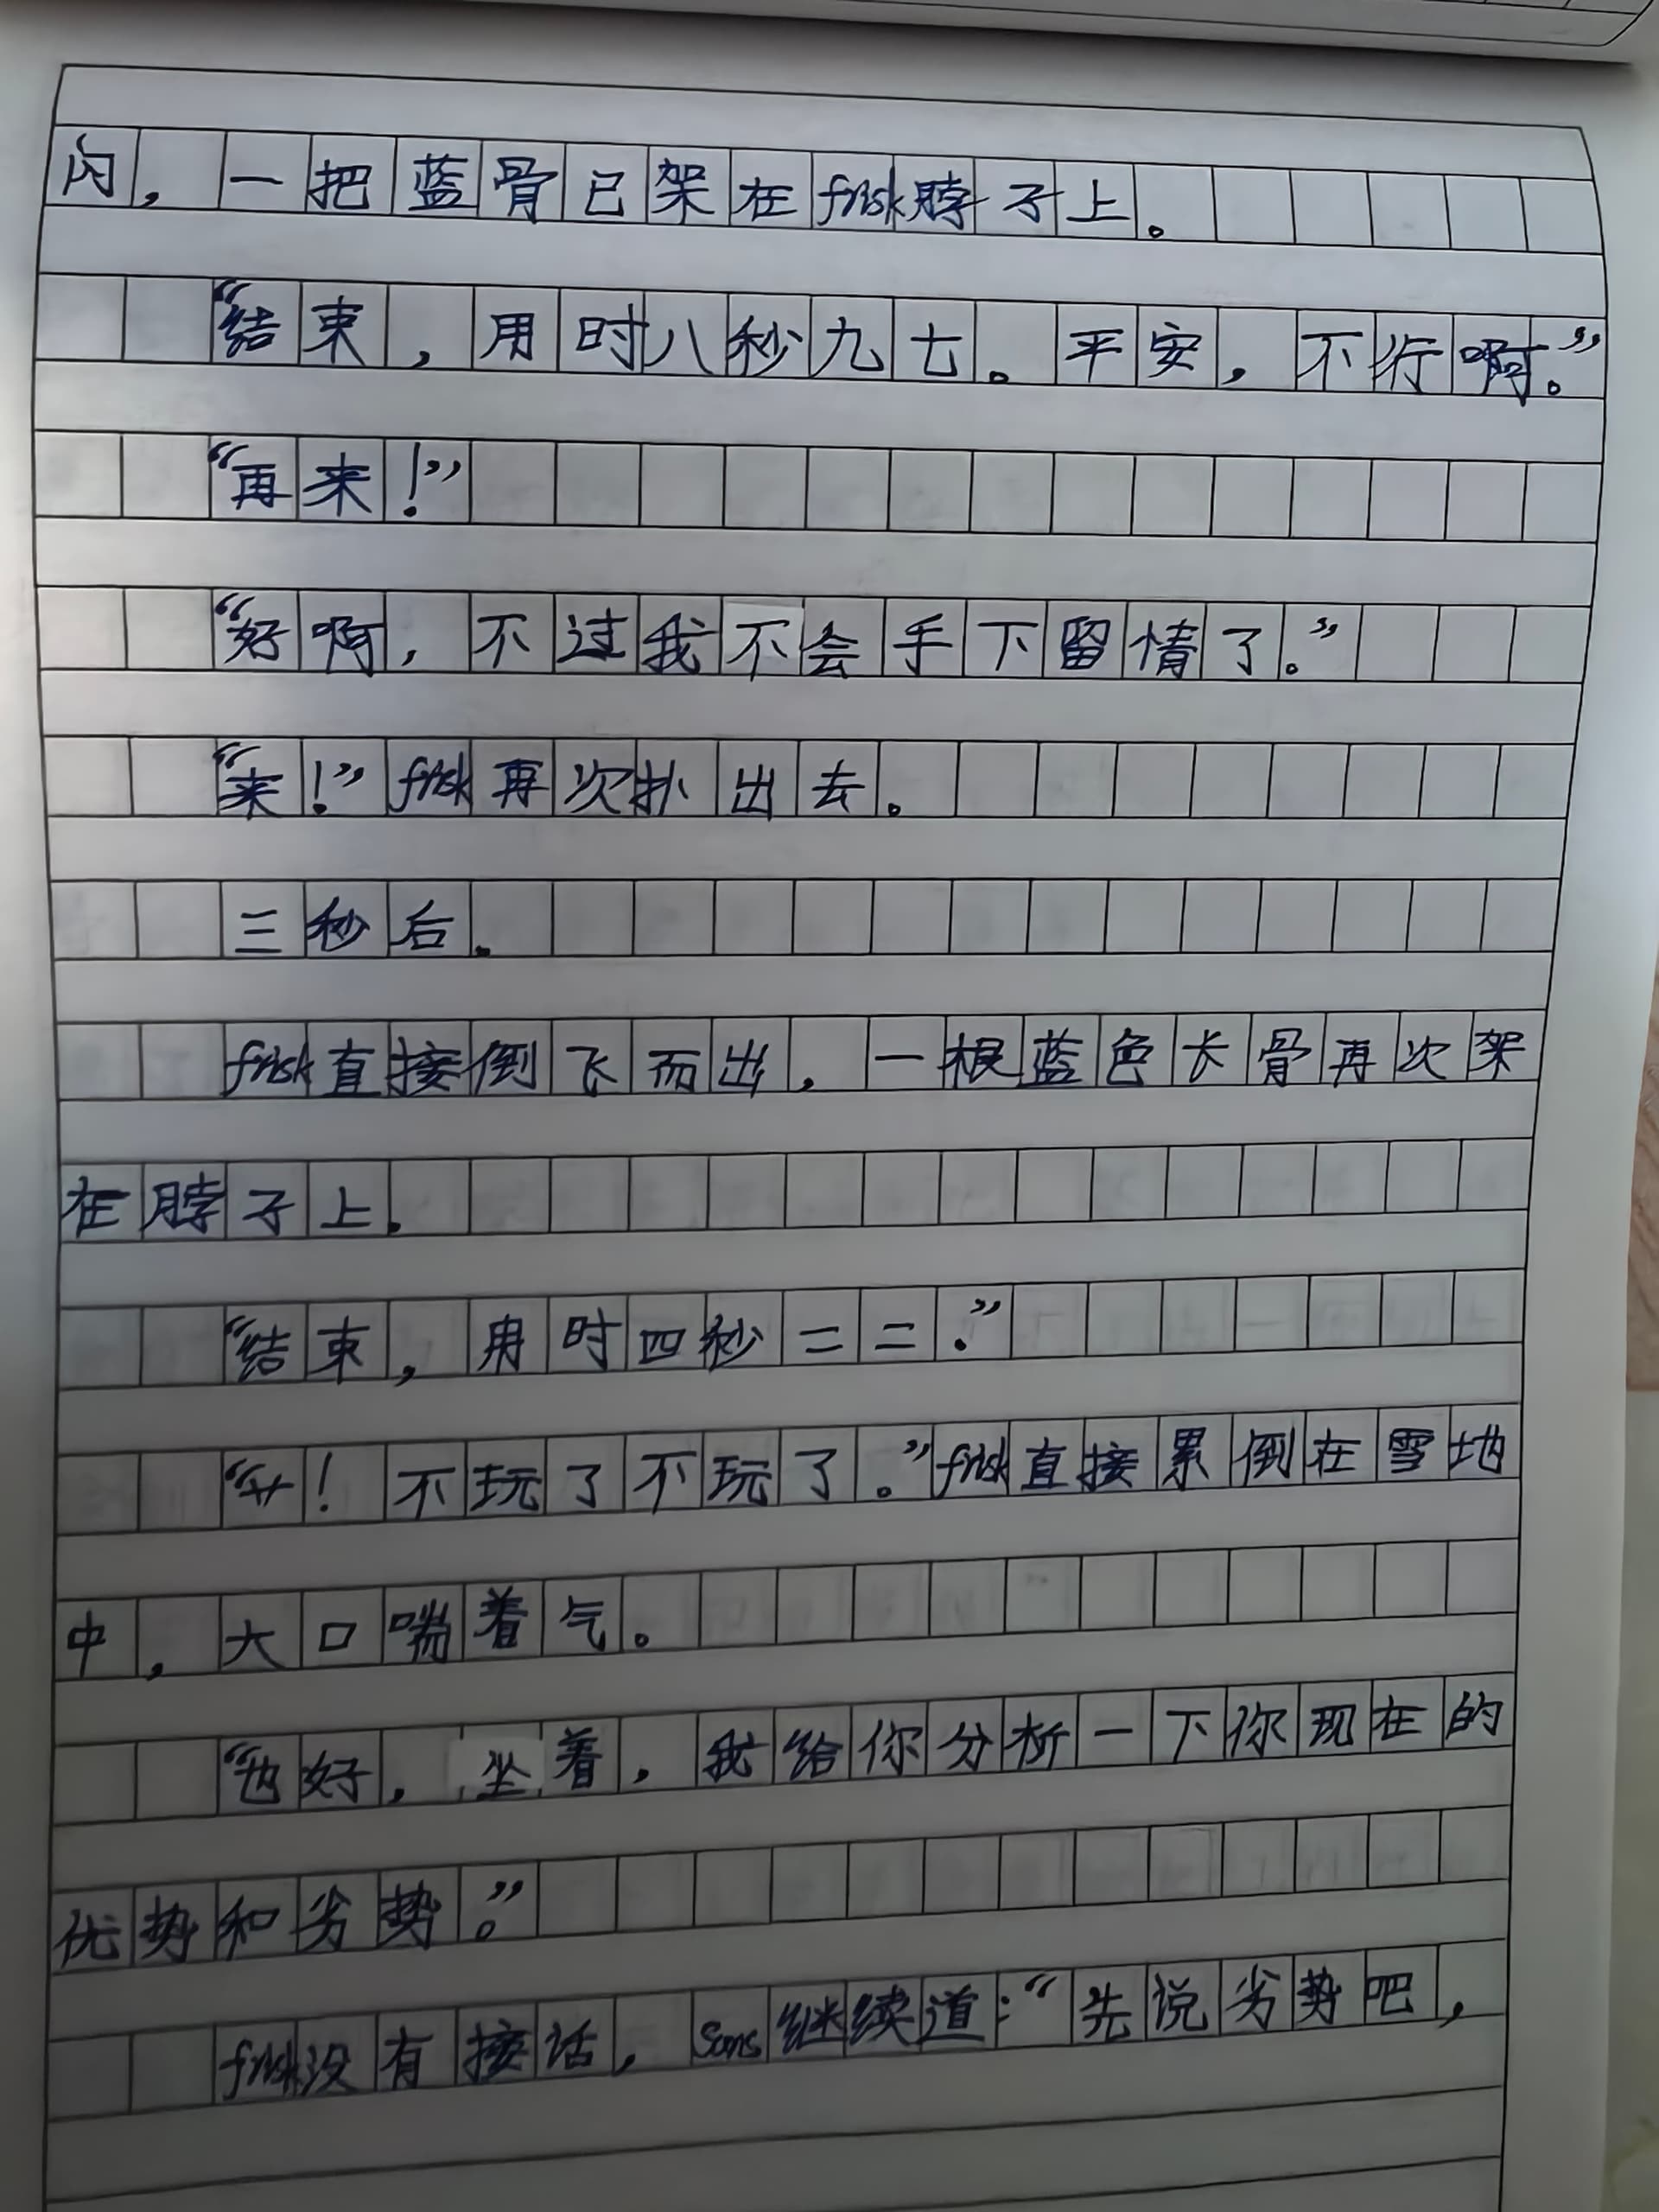 闪，一把蓝骨已架在frisk脖子上。
“结束，用时八秒九七。平安，不行啊。”
“再来！”
“好啊，不过我不会手下留情了。”
“来！”frisk再次扑出去。
三秒后。
frisk直接倒飞而出，一根蓝色长骨再次架
在脖子上.
“结束，用时四秒二二.”
“！不玩了不玩了。”frisk直接累倒在雪地
中，大口喘着气。
“也好，坐着，我给你分析一下你现在的
优势和劣势。”
frisk没有接话，Sans继续道：“先说劣势吧，